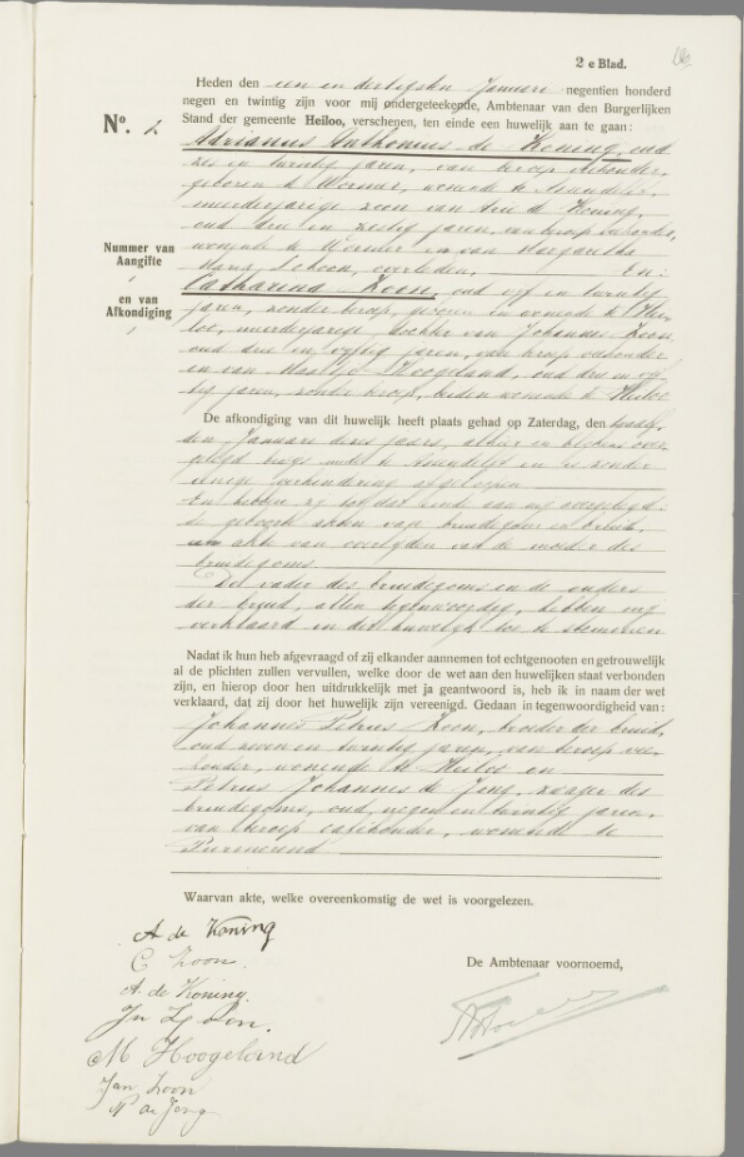 2 e Blad.
Heden den een en dertigsten Januari negentien honderd
negen en twintig zijn voor mij ondergeteekende, Ambtenaar van den Burgerlijken
Stand der gemeente Heiloo, verschenen, ten einde een huwelijk aan te gaan:
Nº. 2
Adrianus Anthonius de Koning, oud
zes en twintig jaren, van beroep veehouder,
geboren te Wormer, wonende te Assendelft,
meerderjarige zoon van Arie de Koning,
oud drie en zestig jaren, van beroep veehouder,
wonende te Wormer en van Margaretha
Schoon, overleden, En:
Nummer van
Aangifte
en van
Afkondiging
Catharina Zoon, oud vijf en twintig
jaren, zonder beroep, geboren en wonende te Hei-
loo, meerderjarige dochter van Johannes Zoon,
oud drie en vijftig jaren, van beroep veehouder
en van Maartje Hoogeland, oud drie en vijf
tig jaren, zonder beroep, beiden wonende te Heiloo
De afkondiging van dit huwelijk heeft plaats gehad op Zaterdag, den twaalf
den Januari dezes jaars, alhier en blijkens over-
gelegd bewijs mede te Assendelft en is zonder
eenige verhindering afgeloopen
En hebben zij tot dat einde aan mij overgelegd:
de geboorte akten van bruidegom en bruid,
akte van overlijden van de moeder des
bruidegoms.
De vader des bruidegoms en de ouders
der bruid, allen tegenwoordig, hebben mij
verklaard in dit huwelijk toe te stemmen
Nadat ik hun heb afgevraagd of zij elkander aannemen tot echtgenooten en getrouwelijk
al de plichten zullen vervullen, welke door de wet aan den huwelijken staat verbonden
zijn, en hierop door hen uitdrukkelijk met ja geantwoord is, heb ik in naam der wet
verklaard, dat zij door het huwelijk zijn vereenigd. Gedaan in tegenwoordigheid van:
Johannes Petrus Zoon, broeder der bruid,
oud zeven en twintig jaren, van beroep vee-
houder, wonende te Heiloo en
Petrus Johannes de Jong, zwager des
bruidegoms, oud negen en twintig jaren,
van beroep caféhouder, wonende te
Purmerend
Waarvan akte, welke overeenkomstig de wet is voorgelezen.
A de Koning
C Zoon.
De Ambtenaar voornoemd,
A. de Koning.
Jn Zoon.
M Hoogeland
Jan Zoon
P de Jong